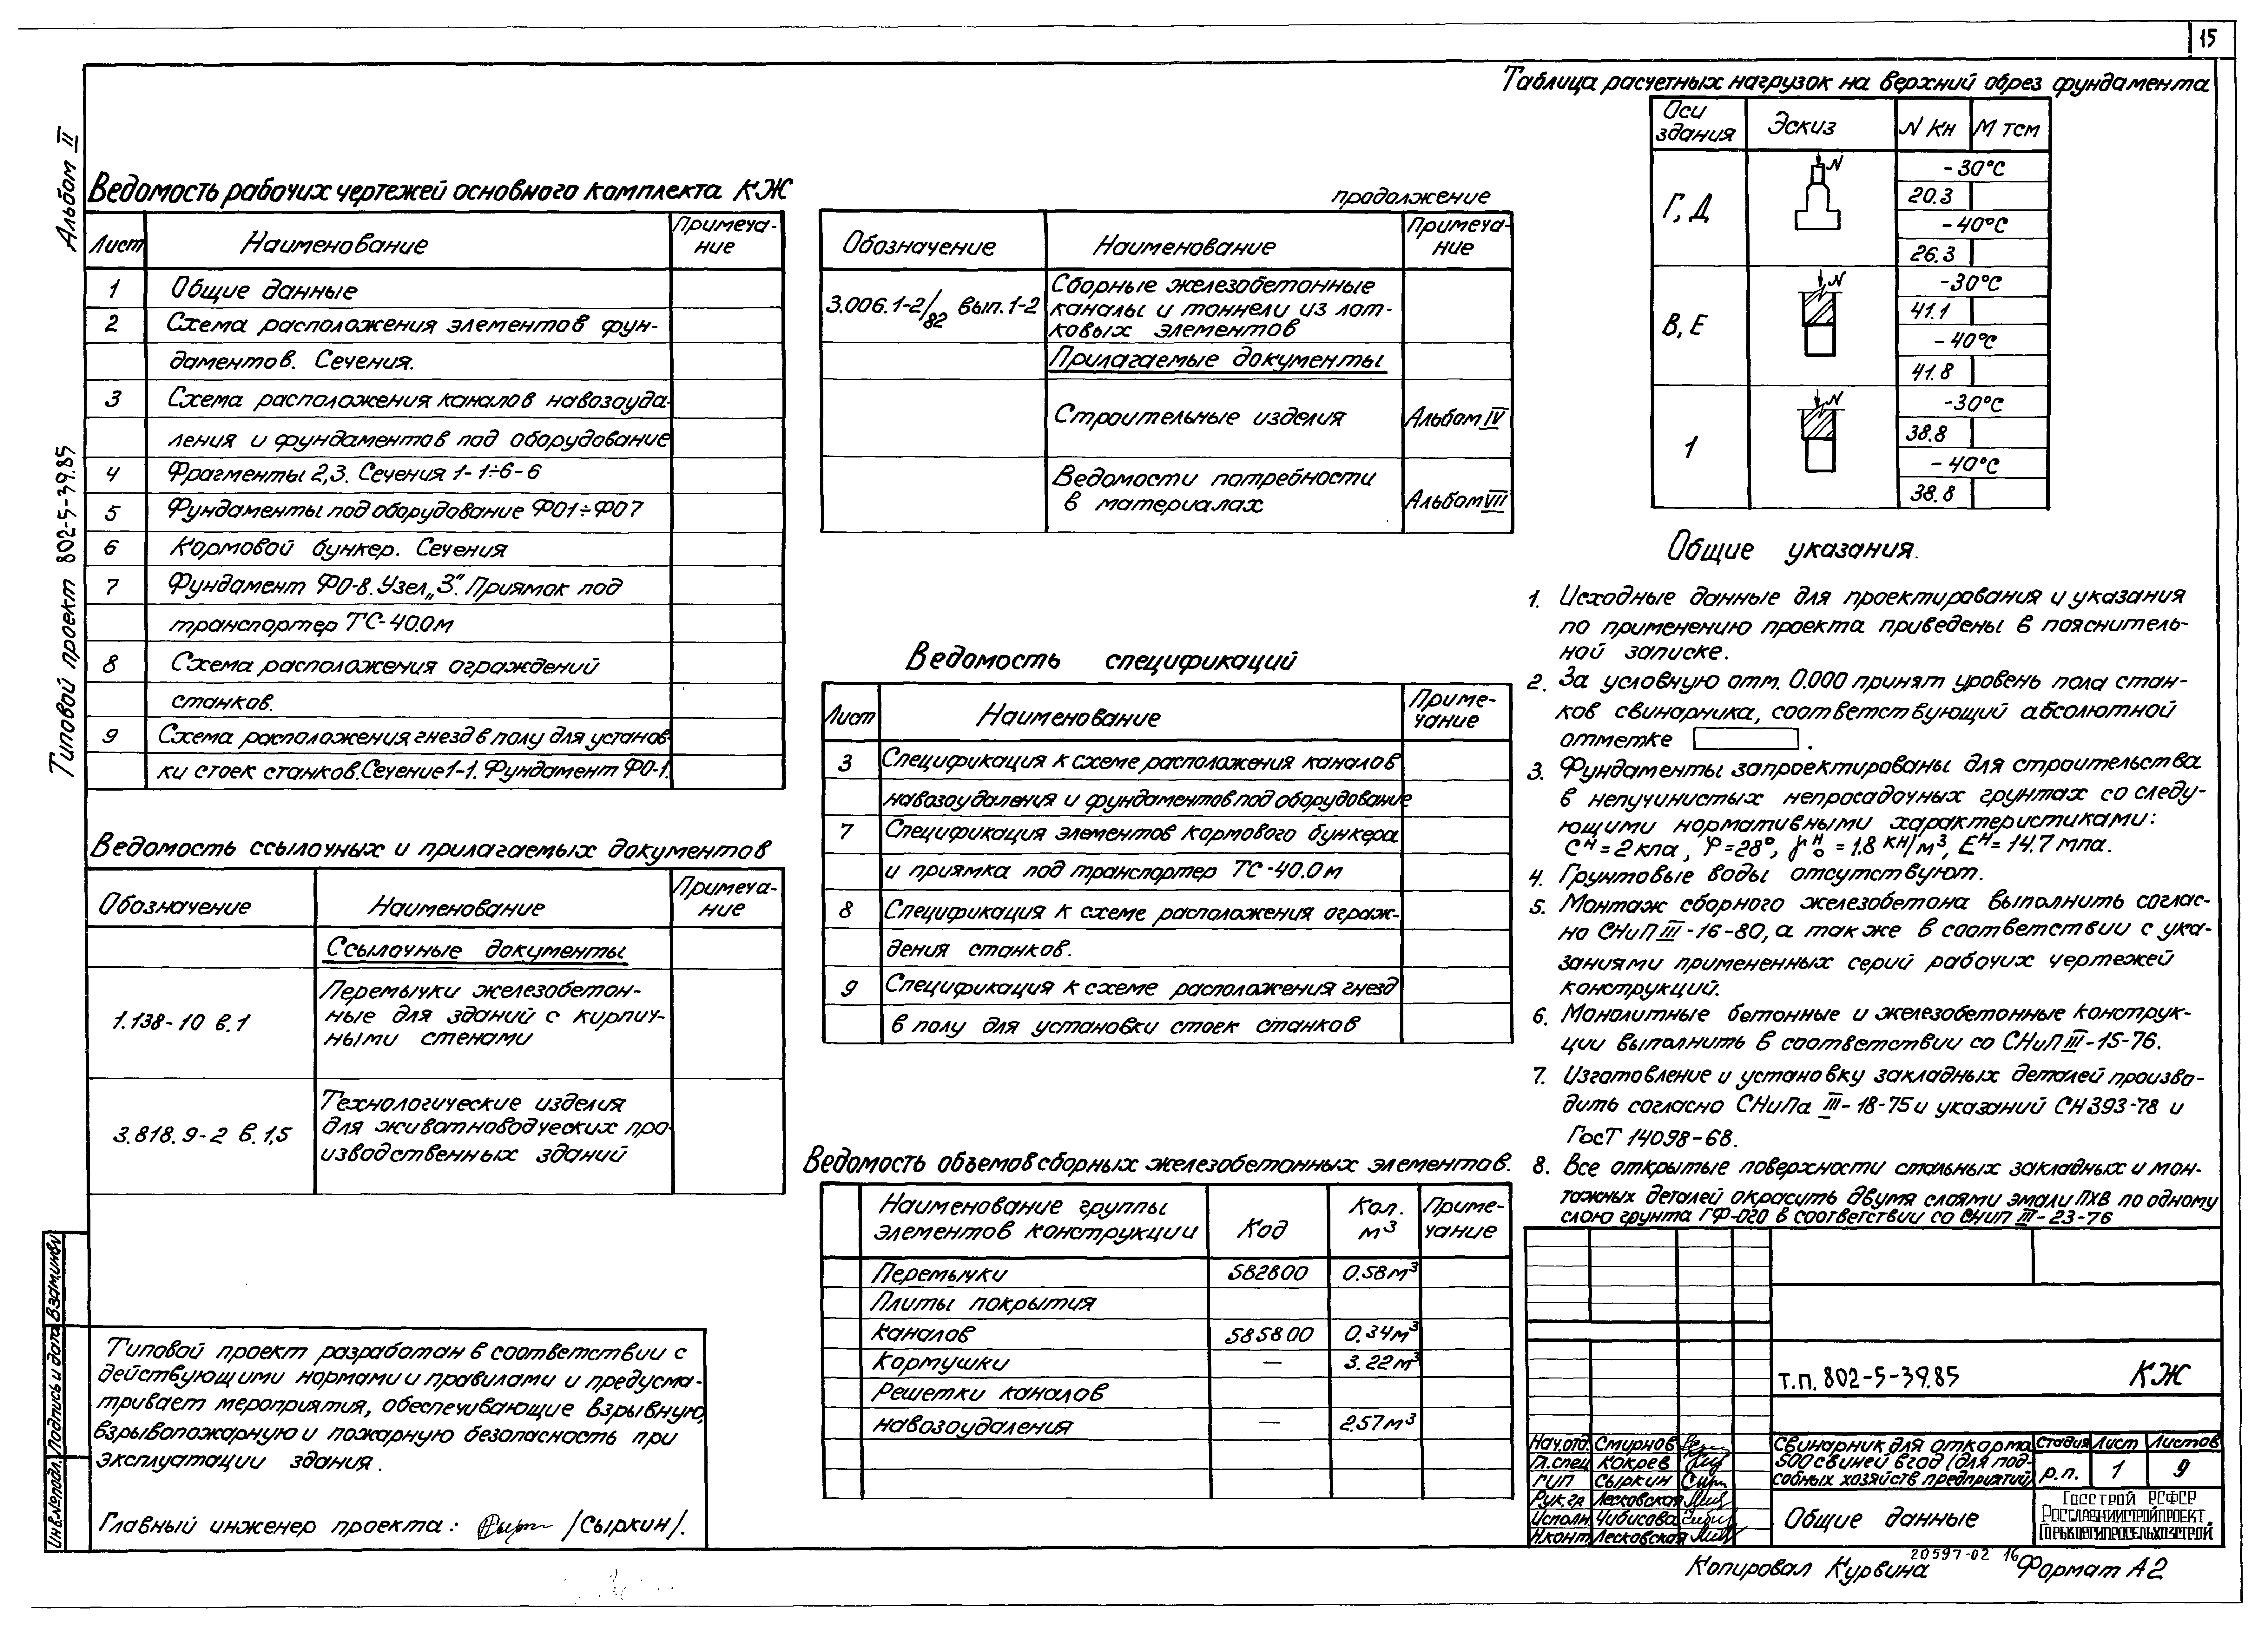 15
Альбом II
Типовой проект 802-5-39.85
Ведомость рабочих чертежей основного комплекта КЖ
Лист Наименование Примеча-
ние
1 Общие данные
2 Схема расположения элементов фун-
даментов. Сечения.
3 Схема расположения каналов навозоуда-
ления и фундаментов под оборудование
4 Фрагменты 2,3. Сечения 1-1÷6-6
5 Фундаменты под оборудование ФО1÷ФО7
6 Кормовой бункер. Сечения
7 Фундамент ФО-8. Узел „3". Приямок под
транспортер ТС-40.0м
8 Схема расположения ограждений
станков.
9 Схема расположения гнезд в полу для установ
ки стоек станков. Сечение 1-1. Фундамент ФО-1.
Ведомость ссылочных и прилагаемых документов
Обозначение Наименование Примеча-
ние
Ссылочные документы
1.138-10 в.1 Перемычки железобетон-
ные для зданий с кирпич-
ными стенами
3.818.9-2 в.1,5 Технологические изделия
для животноводческих про-
изводственных зданий
Типовой проект разработан в соответствии с
действующими нормами и правилами и предусма-
тривает мероприятия, обеспечивающие взрывную,
взрывопожарную и пожарную безопасность при
эксплуатации здания.
Главный инженер проекта: /Сыркин/.
Взам.инв.№
Подпись и дата
Инв.№ подл.
продолжение
Обозначение Наименование Примеча-
ние
3.006.1-2/82 вып.1-2 Сборные железобетонные
каналы и тоннели из лот-
ковых элементов
Прилагаемые документы
Строительные изделия Альбом IV
Ведомости потребности
в материалах Альбом VII
Ведомость спецификаций
Лист Наименование Приме-
чание
3 Спецификация к схеме расположения каналов
навозоудаления и фундаментов под оборудование
7 Спецификация элементов кормового бункера
и приямка под транспортер ТС-40.0м
8 Спецификация к схеме расположения ограж-
дения станков.
9 Спецификация к схеме расположения гнезд
в полу для установки стоек станков
Ведомость объемов сборных железобетонных элементов.
Наименование группы
элементов конструкции Код Кол.
м3 Приме-
чание
Перемычки 582800 0.58м3
Плиты покрытия
каналов 585800 0.34м3
Кормушки — 3.22м3
Решетки каналов
навозоудаления — 2.57м3
Таблица расчетных нагрузок на верхний обрез фундамента
Оси
здания Эскиз N Кн М тсм
Г, Д N -30°С
20.3
-40°С
26.3
В, Е N -30°С
41.1
-40°С
41.8
1 N -30°С
38.8
-40°С
38.8
Общие указания.
1. Исходные данные для проектирования и указания
по применению проекта приведены в пояснитель-
ной записке.
2. За условную отм. 0.000 принят уровень пола стан-
ков свинарника, соответствующий абсолютной
отметке .
3. Фундаменты запроектированы для строительства
в непучинистых непросадочных грунтах со следу-
ющими нормативными характеристиками:
Сᴴ=2кпа, φ=28°, γ₀ᴴ=1.8 кн/м³, Еᴴ=14.7 мпа.
4. Грунтовые воды отсутствуют.
5. Монтаж сборного железобетона выполнить соглас-
но СНиП III-16-80, а также в соответствии с ука-
заниями примененных серий рабочих чертежей
конструкций.
6. Монолитные бетонные и железобетонные конструк-
ции выполнить в соответствии со СНиП III-15-76.
7. Изготовление и установку закладных деталей произво-
дить согласно СНиПа III-18-75 и указаний СН 393-78 и
ГосТ 14098-68.
8. Все открытые поверхности стальных закладных и мон-
тажных деталей окрасить двумя слоями эмали ПХВ по одному
слою грунта ГФ-020 в соответствии со СНиП III-23-76
т.п. 802-5-39.85 КЖ
Нач.отд. Смирнов
Гл.спец Кокрев
ГИП Сыркин
Рук.гр Лесковская
Исполн. Чибисова
Н.конт Лесковская
Свинарник для откорма
500 свиней в год (для под-
собных хозяйств предприятий)
Стадия Лист Листов
р.п. 1 9
Общие данные
Госстрой РСФСР
Росглавниистройпроект.
Горьковгипросельхозстрой
20597-02 16
Копировал Курвина Формат А2